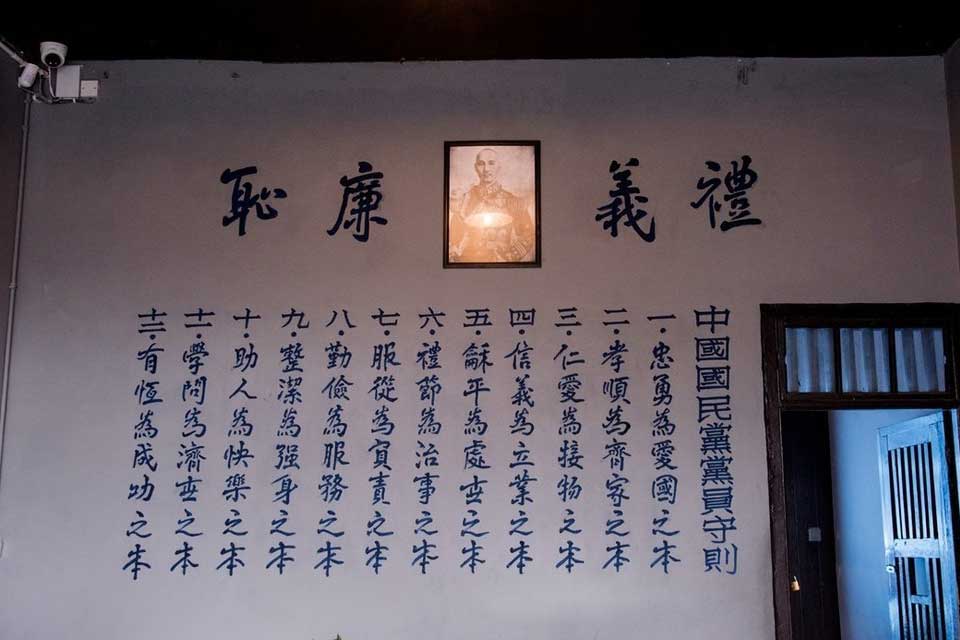 禮義廉恥
中國國民黨黨員守則
一·忠勇為愛國之本
二·孝順為齊家之本
三·仁愛為接物之本
四·信義為立業之本
五·龢平為處世之本
六·禮節為治事之本
七·服從為負責之本
八·勤儉為服務之本
九·整潔為强身之本
十·助人為快樂之本
十一·學問為濟世之本
十二·有恆為成功之本